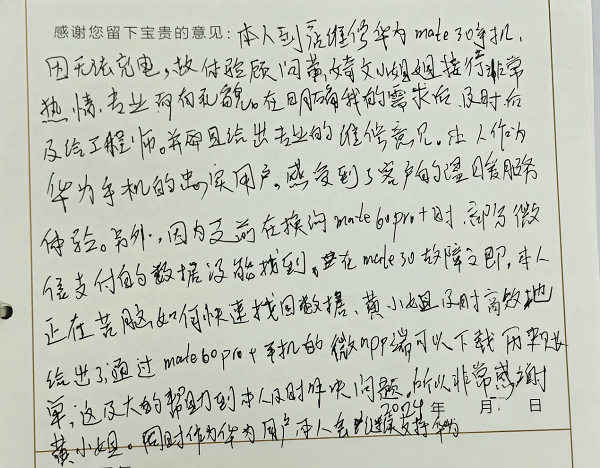 感谢您留下宝贵的意见：本人到店维修华为mate30手机，
因无法充电，故体验顾问黄婷文小姐姐接待非常
热情、专业而有礼貌。在明确我的需求后及时后
及给工程师。并即且给出专业的维修意见。让人作为
华为手机的忠实用户，感受到了客户的温暖服务
体验。另外，因为之前在换购mate60pro+时，部分微
信支付的数据没能找到。并在mate30故障之即，本人
正在苦恼如何快速找回数据、黄小姐及时高效地
给出了通过mate60pro+手机的微app端可以下载历
单，这极大的帮助到本人及时解决问题。所以非常感谢
黄小姐。同时作为华为用户本人会继续支持华为
2024年 月 日